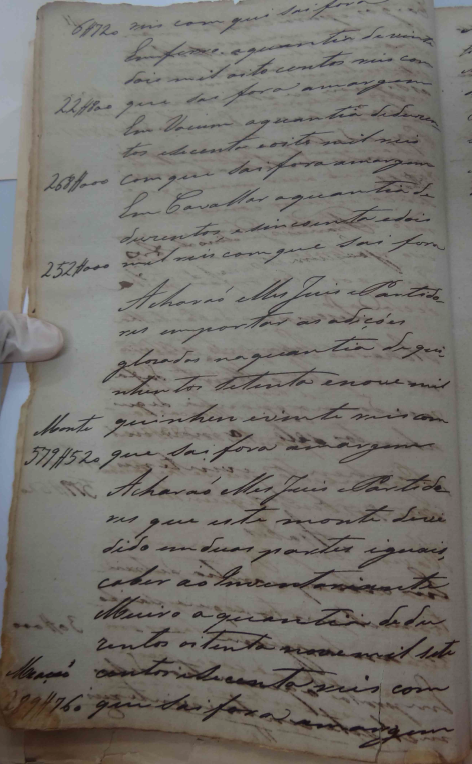 6#720 reis com que sai fora
Em ferro aquantia de vinte
dois mil oito centos reis com
22#800 que sai fora amargem
Em Vacum aquantia de duzen
tos e secenta e oito mil reis
268#000 com que sai fora amargem
Em Cavallar aquantia de
duzentos e sincoenta e dois
252#000 mil reis com que sai fora
Acharaõ elles Juis e Partido
res emportar as adições
glozadas na quantia de qui
nhentos setenta e nove mil
Monte quinhen e vinte reis com
579#520 que sai fora amargem
Acharaõ elles Juis e Partido
res que este monte devi
dido em duas partes iguais,
caber ao Inventariante
Meeiro aquantia de du
zentos oitenta nove mil sete
Meaçaõ centos e secenta reis com
289#760 que sai fora amargem